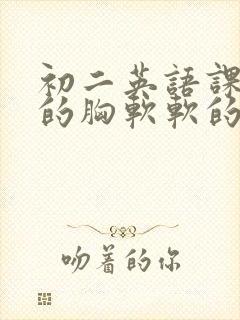 初二英語課
的胸軟軟的
吻着的你